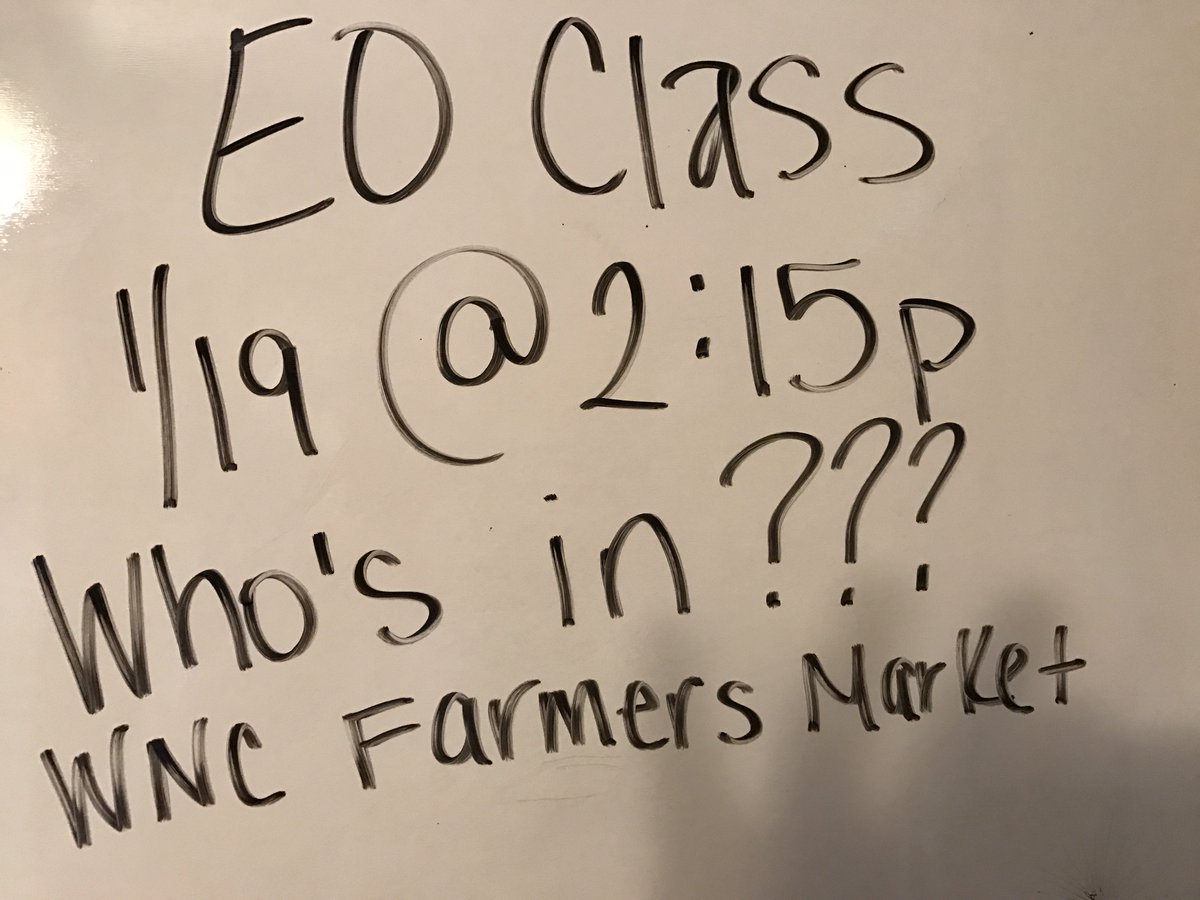 EO Class
1/19 @ 2:15p
Who's in ???
WNC Farmers Market